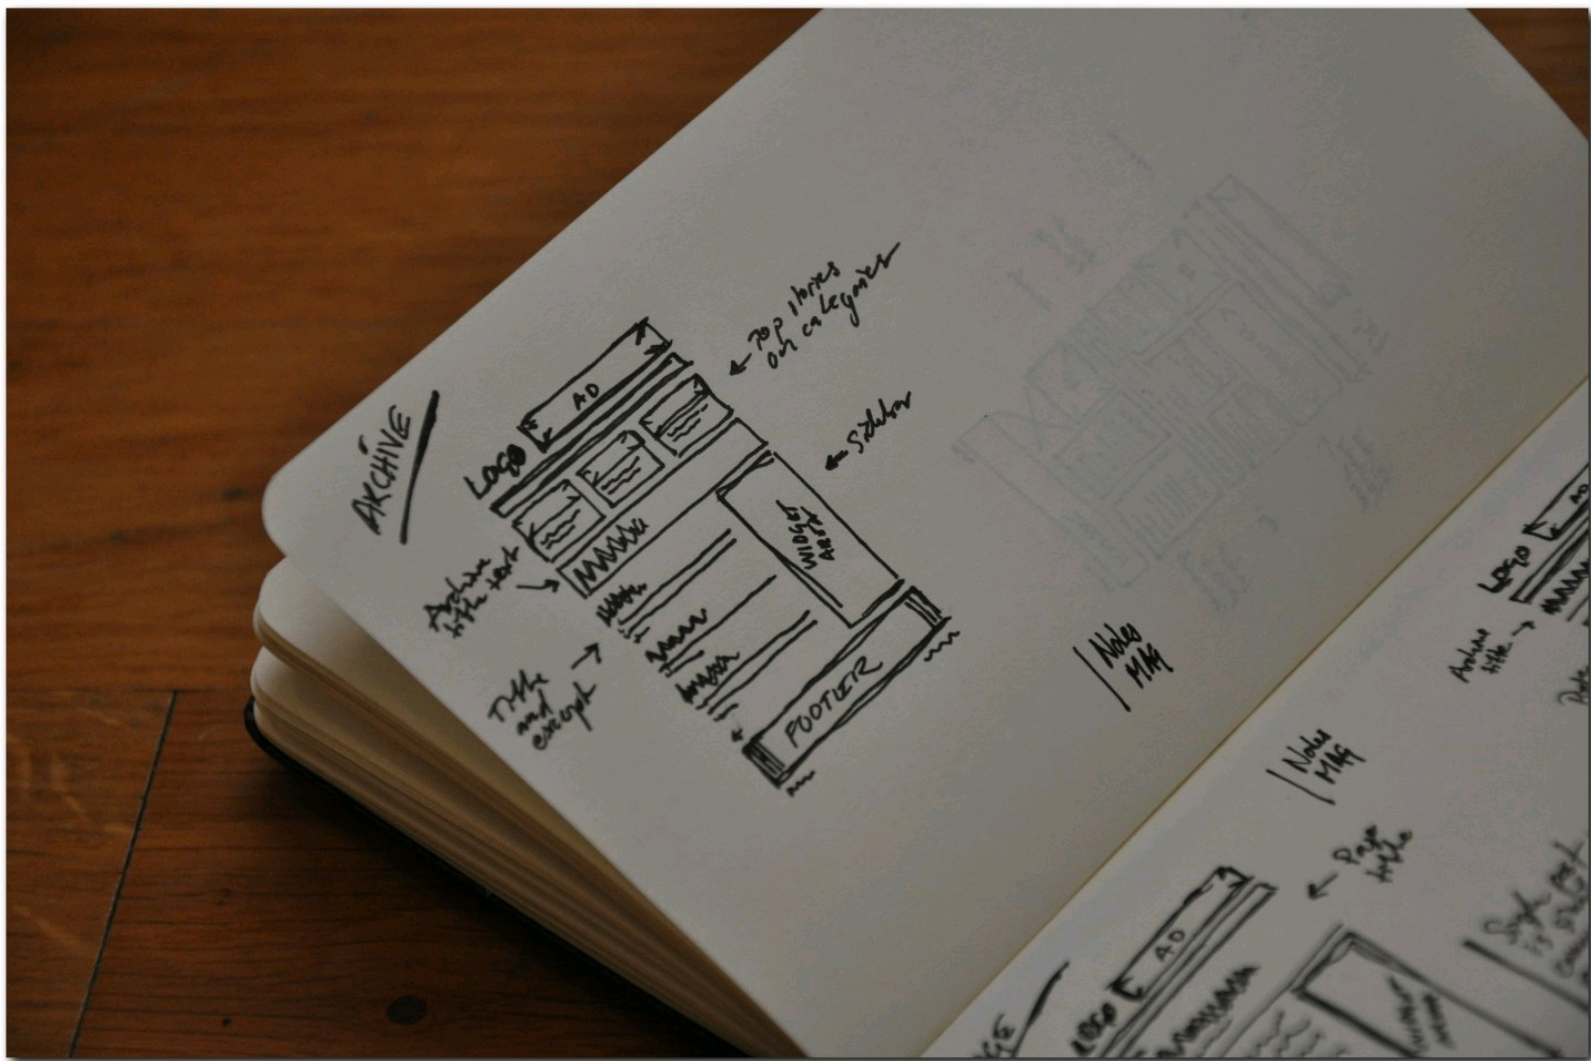 ARCHIVE
LOGO
AD
← Top stories
on categories
← Sidebar
WIDGET
AREA
Archive
title text →
Title
and
excerpt →
FOOTER
Notes
MAG
LOGO
AD
Archive
title →
Notes
MAG
← Page
title
LOGO
AD
WIDGET
AREA
Single
is